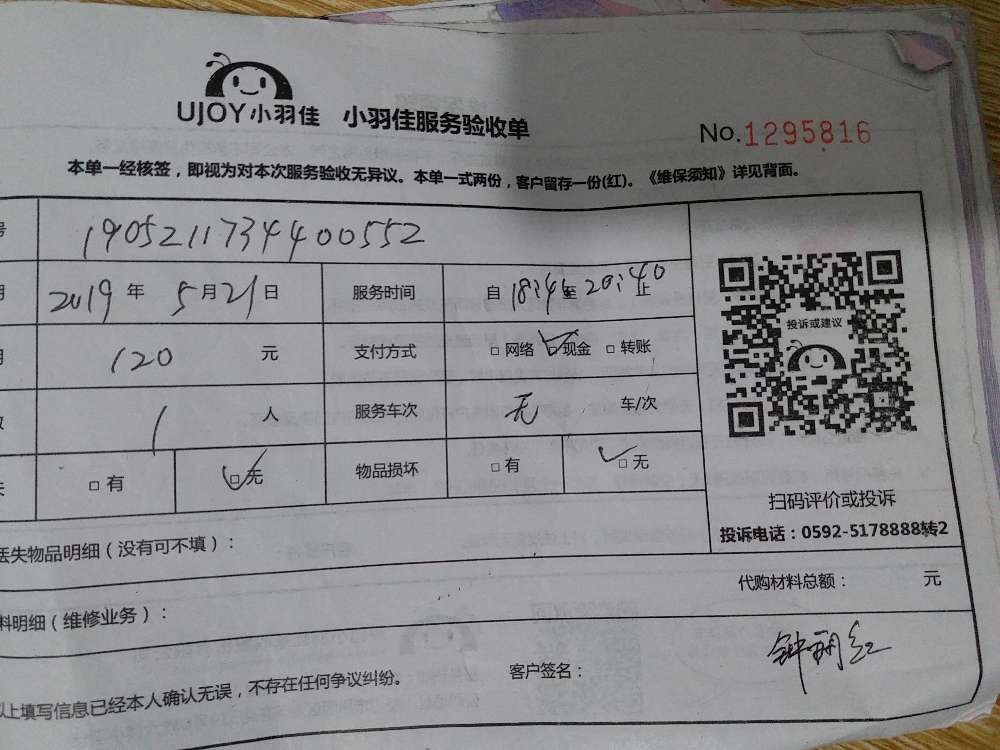 UJOY小羽佳 小羽佳服务验收单
No.1295816
本单一经核签，即视为对本次服务验收无异议。本单一式两份，客户留存一份(红)。《维保须知》详见背面。
号 1905211734400552
期 2019 年 5 月 21 日 服务时间 自 18:41 至 20:40 止
用 120 元 支付方式 □ 网络 ☑ 现金 □ 转账
数 1 人 服务车次 无 车/次
失 □ 有 ☑ 无 物品损坏 □ 有 ☑ 无
投诉或建议
扫码评价或投诉
投诉电话：0592-5178888转2
丢失物品明细（没有可不填）：
代购材料总额： 元
料明细（维修业务）：
客户签名：
以上填写信息已经本人确认无误，不存在任何争议纠纷。